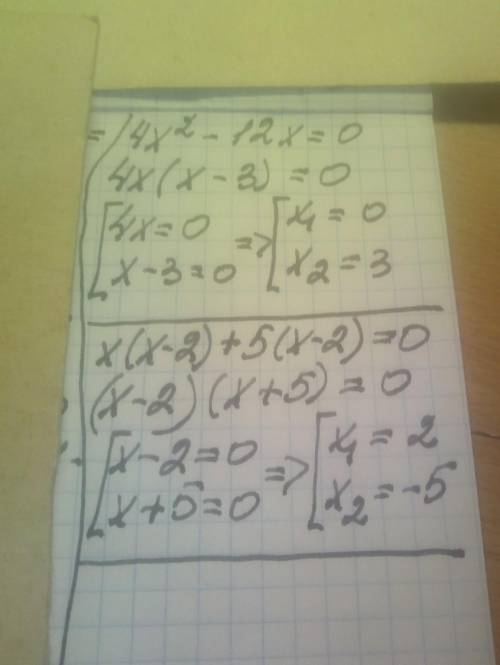 4x² - 12x = 0
4x(x - 3) = 0
[4x = 0 => [x₁ = 0
[x - 3 = 0 [x₂ = 3
x(x-2) + 5(x-2) = 0
(x-2)(x+5) = 0
[x - 2 = 0 => [x₁ = 2
[x + 5 = 0 [x₂ = -5